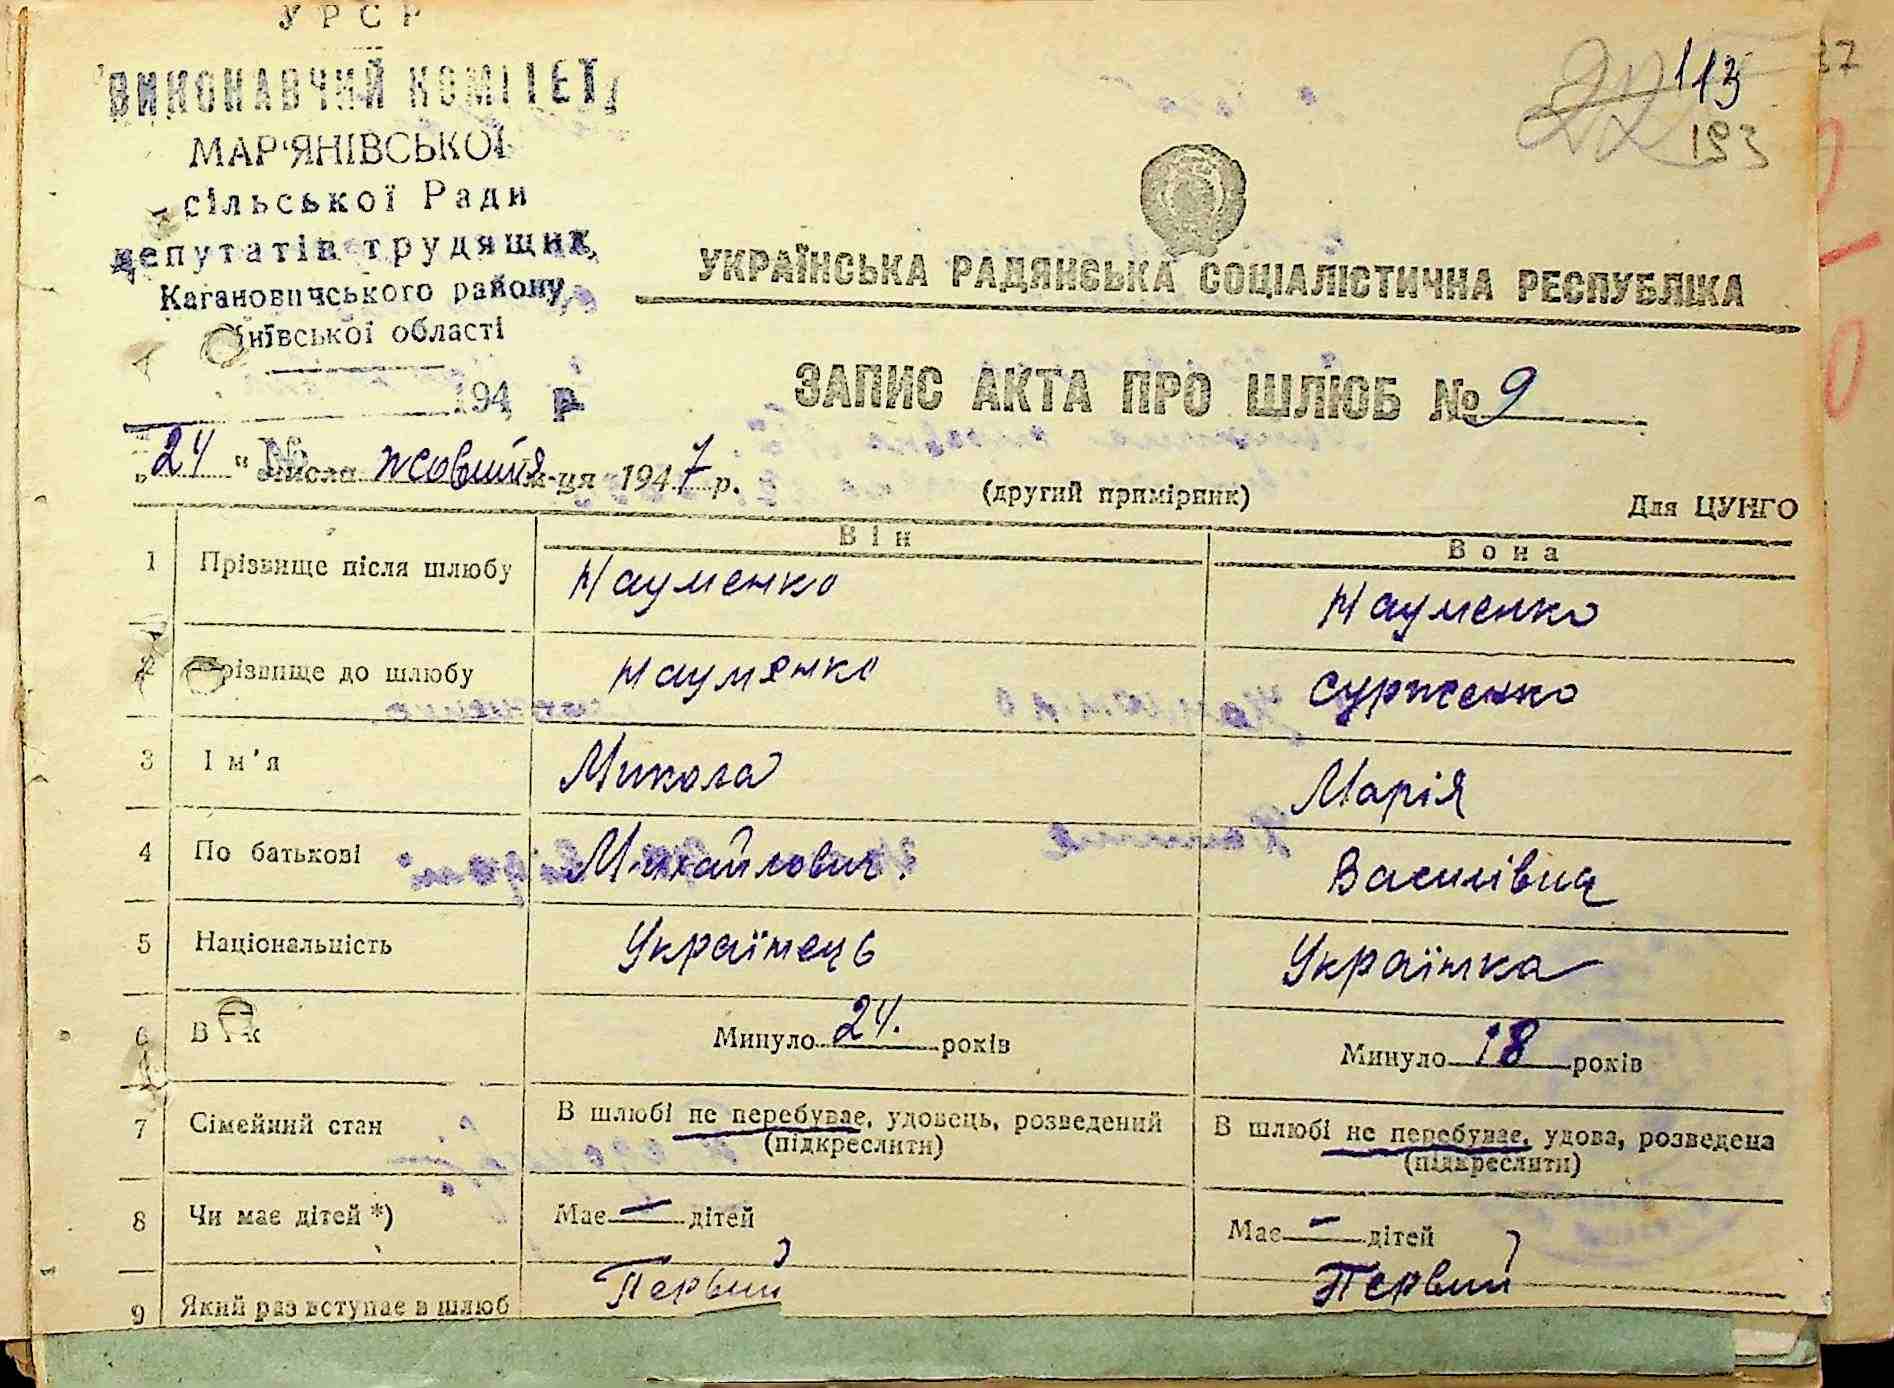 УРСР
ВИКОНАВЧИЙ КОМІТЕТ
МАР'ЯНІВСЬКОЇ
сільської Ради
депутатів трудящих
Кагановичського району
Київської області
194 р
№
113
193
37
УКРАЇНСЬКА РАДЯНСЬКА СОЦІАЛІСТИЧНА РЕСПУБЛІКА
ЗАПИС АКТА ПРО ШЛЮБ № 9
„24" числа жовтня м-ця 1947 р.
(другий примірник)
Для ЦУНГО
Він
Вона
1 Прізвище після шлюбу Науменко Науменко
2 Прізвище до шлюбу Науменко Сурженко
3 Ім'я Микола Марія
4 По батькові Михайлович. Василівна
5 Національність Українець Українка
6 Вік Минуло 24. років Минуло 18 років
7 Сімейний стан В шлюбі не перебуває, удовець, розведений В шлюбі не перебуває, удова, розведена
(підкреслити) (підкреслити)
8 Чи має дітей *) Має — дітей Має — дітей
9 Який раз вступає в шлюб Первий Первий